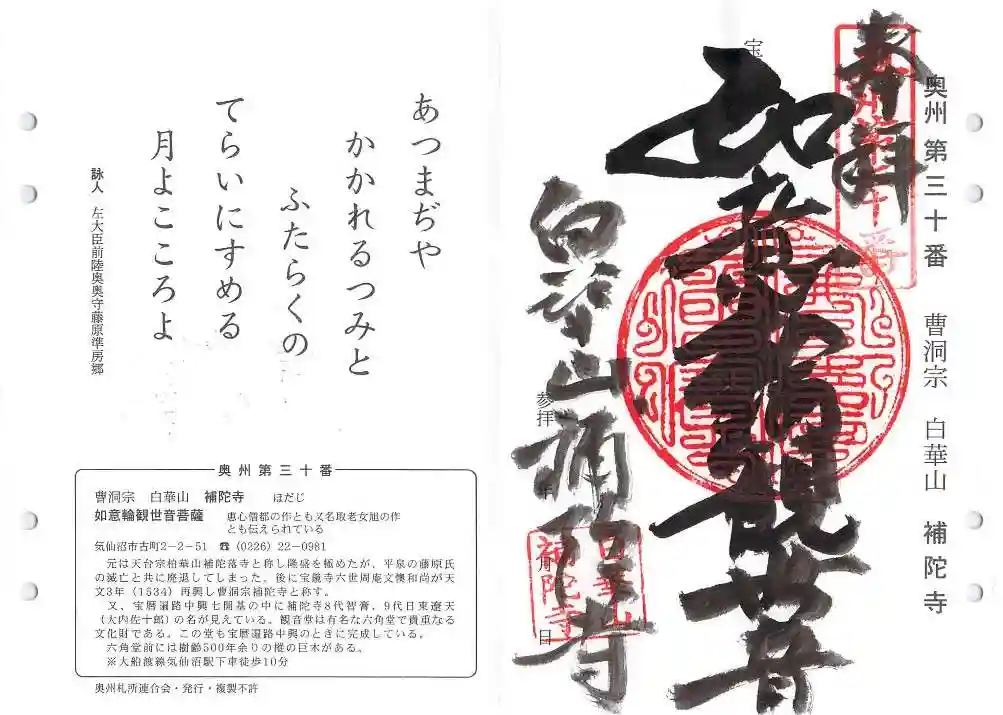 奥州第三十番 曹洞宗 白華山 補陀寺
奉拝
奥州第三十番
宝
如意輪観世音
参拝
白華山補陀寺
年
月
日
白華山
補陀寺
あつまぢや
かかれるつみと
ふたらくの
てらいにすめる
月よこころよ
詠人 左大臣前陸奥奥守藤原準房郷
奥州第三十番
曹洞宗 白華山 補陀寺 ほだじ
如意輪観世音菩薩 恵心僧都の作とも又名取老女旭の作
とも伝えられている
気仙沼市古町2-2-51 ☎(0226)22-0981
元は天台宗柏華山補陀落寺と称し隆盛を極めたが、平泉の藤原氏
の滅亡と共に廃退してしまった。後に宝鏡寺六世周庵文懐和尚が天
文3年(1534)再興し曹洞宗補陀寺と称す。
又、宝暦遍路中興七開基の中に補陀寺8代智膏、9代日東遼天
(大内佐十郎)の名が見えている。観音堂は有名な六角堂で貴重なる
文化財である。この堂も宝暦遍路中興のときに完成している。
六角堂前には樹齢500年余りの樅の巨木がある。
※大船渡線気仙沼駅下車徒歩10分
奥州札所連合会・発行・複製不許